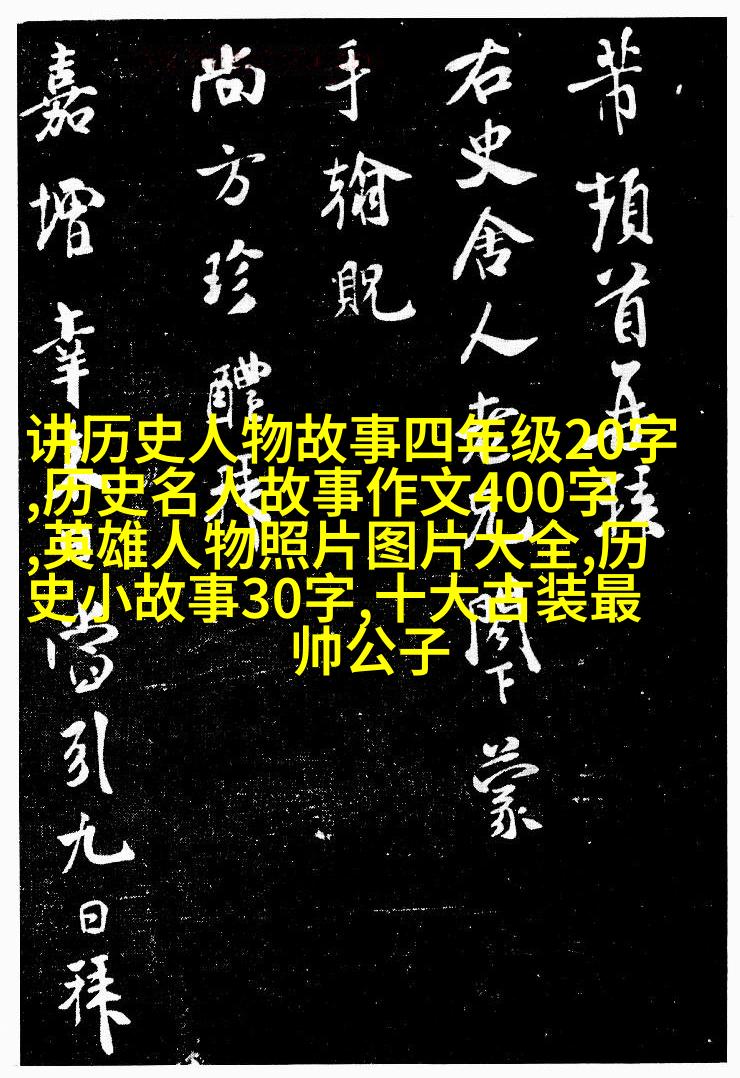 讲历史人物故事四年级20字
,历史名人故事作文400字
,英雄人物照片图片大全,历
史小故事30字,十大古装最
帅公子
芾頓首再拜
右史舍人老兄閣下蒙
手翰貺
尚方珍醴拜
嘉增幸當引九日拜